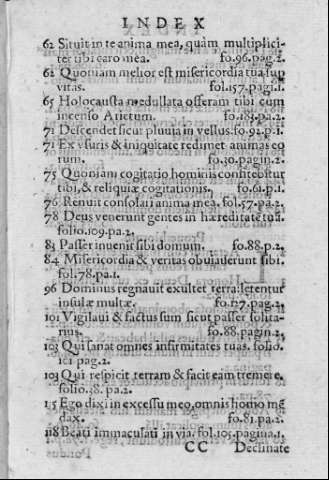 INDEX
62 Sitiuit in te anima mea, quàm multiplici-
ter tibi caro mea. fo.96.pag.2.
62 Quoniam melior est misericordia tua sup
vitas. fol.157.pagi.1.
65 Holocausta medullata offeram tibi cum
incenso Arietum. fo.181.pa.2.
71 Descendet sicut pluuia in vellus. fo.92.p.1.
71 Ex vsuris & iniquitate redimet animas eo
rum. fo.30.pagin.2.
75 Quoniam cogitatio hominis confitebitur
tibi, & reliquiæ cogitationis. fo.61.p.1.
76 Renuit consolari anima mea. fol.57.pa.2.
78 Deus venerunt gentes in hæreditatē tuā.
folio.109.pa.2.
83 Passer inuenit sibi domum. fo.88.p.2.
84 Misericordia & veritas obuiauerunt sibi.
fol.78.pa.1.
96 Dominus regnauit exultet terra: letentur
insulæ multæ. fo.127.pag.2.
101 Vigilaui & factus sum sicut passer solita-
rius. fo.88.pagin.2.
102 Qui sanat omnes infirmitates tuas. folio.
121 pag.2.
103 Qui respicit terram & facit eam tremere.
folio.38.pa.2.
115 Ego dixi in excessu meo, omnis homo mē
dax. fo.81.pa.2.
118 Beati immaculati in via. fol.105.pagina.1.
CC Declinate